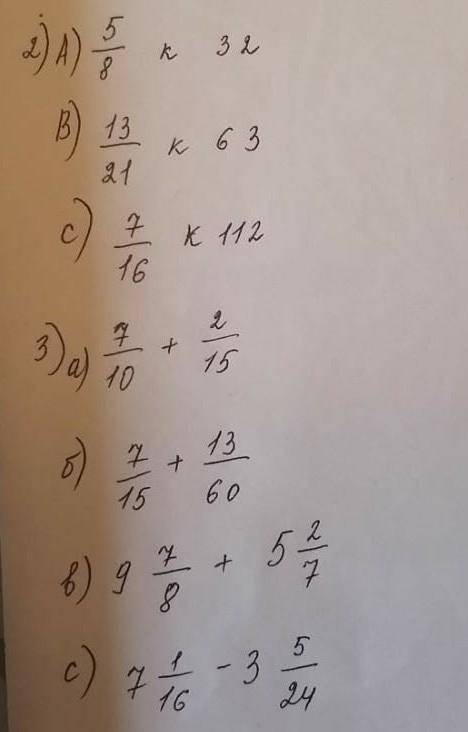 2) А) 5/8 к 32
В) 13/21 к 63
с) 7/16 к 112
3) а) 7/10 + 2/15
б) 7/15 + 13/60
в) 9 7/8 + 5 2/7
с) 7 1/16 - 3 5/24